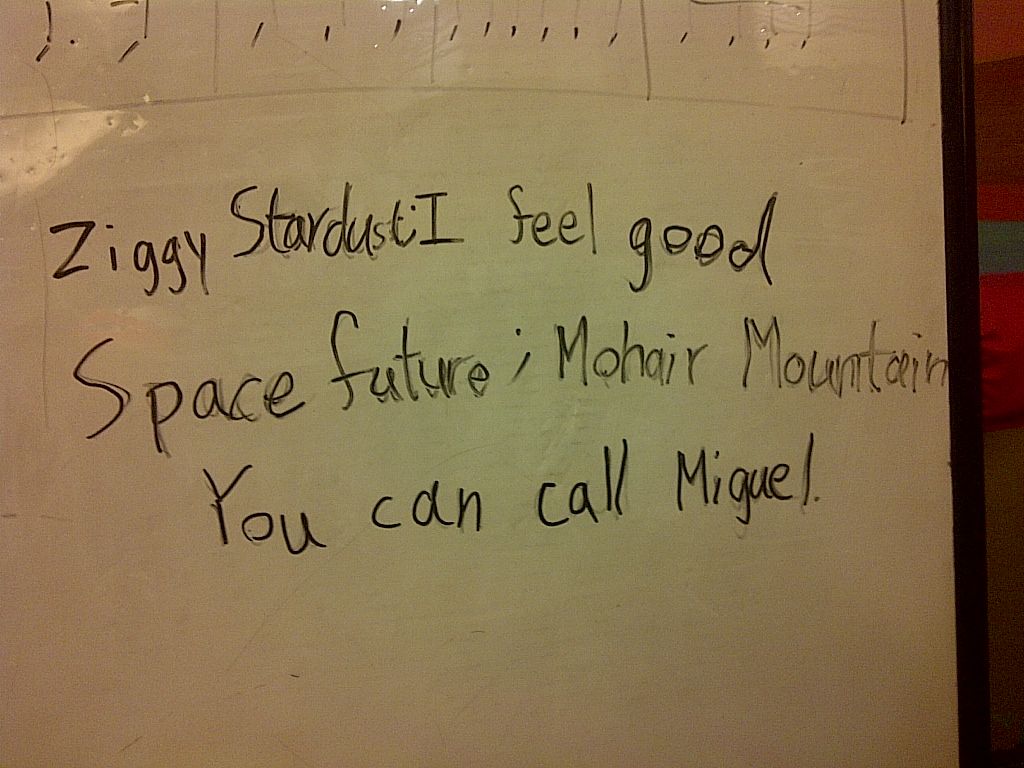 Ziggy Stardust: I feel good
Space future; Mohair Mountain
You can call Miguel.